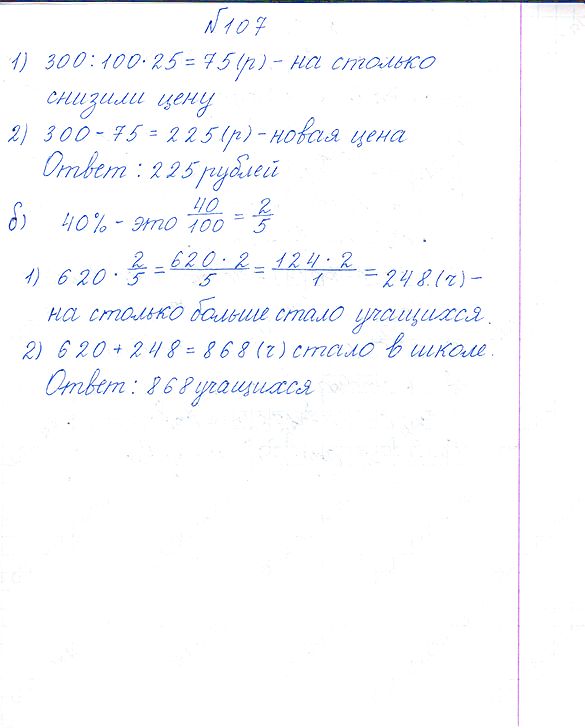 №107
1) 300:100·25=75(р) - на столько
снизили цену
2) 300-75=225(р)-новая цена
Ответ: 225 рублей
б) 40% - это 40/100 = 2/5
1) 620 · 2/5 = 620·2/5 = 124·2/1 = 248.(ч) -
на столько больше стало учащихся.
2) 620+248=868(ч) стало в школе.
Ответ: 868 учащихся